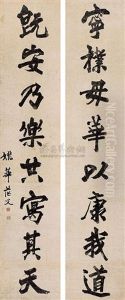 寧樸毋華以康我道
既安乃樂共寫其天
姚華茫父